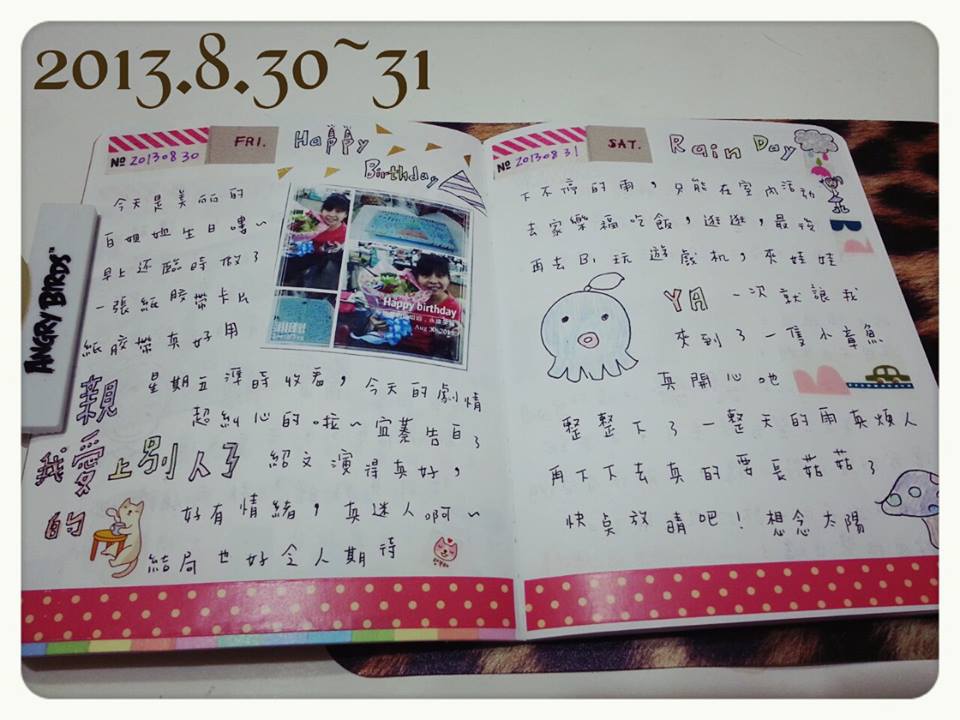 2013.8.30~31
FRI.
No 20130830
Happy
Birthday
今天是美丽的
百姐她生日嘍~
早上还臨時做了
一張紙胶帶卡片
紙胶帶真好用
Happy birthday
星期五準時收看，今天的劇情
超糾心的啦~宜蓁告白了
紹文演得真好，
好有情緒，真迷人啊~
結局也好令人期待
親愛的
我愛上別人了
SAT.
No 20130831
Rain Day
下不停的雨，只能在室內活动
去家樂福吃飯，逛逛，最後
再去B1玩遊戲机，夾娃娃
YA 一次就讓我
夾到了一隻小章魚
真開心吔
整整下了一整天的雨真煩人
再下下去真的要長菇菇了
快点放晴吧！想念太陽
ANGRY BIRDS"